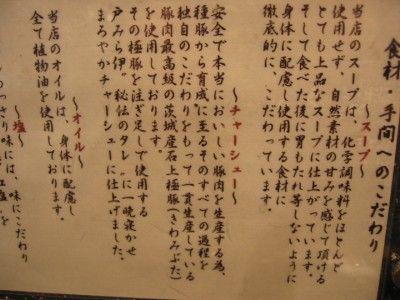 食材・手間へのこだわり
～スープ～
当店のスープは、化学調味料をほとんど
使用せず、自然素材の甘みを感じて頂ける
とても上品なスープに仕上がっています。
そして食べた後に胃もたれ等しないように
身体に配慮し使用する食材に
徹底的に、こだわっています。
～チャーシュー～
安全で本当においしい豚肉を生産する為、
種豚から育成に至るそのすべての過程を
独自のこだわりをもって一貫生産している
豚肉最高級の茨城産石上極豚(きわみぶた)
を使用しております。
その極豚を注ぎ足しで使用する
戸みら伊〝秘伝のタレ〟に一晩寝かせ
まろやかチャーシューに仕上げました。
～オイル～
当店のオイルは、身体に配慮し
全て植物油を使用しております。
～塩～
あっさり味には、味にこだ